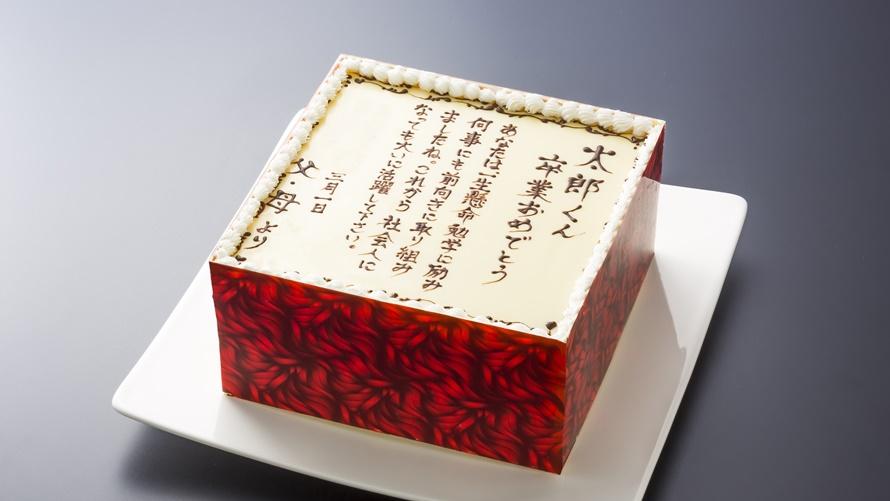 太郎くん
卒業おめでとう
あなたは一生懸命勉学に励み
何事にも前向きに取り組み
ましたね。これから社会人に
なっても大いに活躍して下さい。
三月一日
父・母より